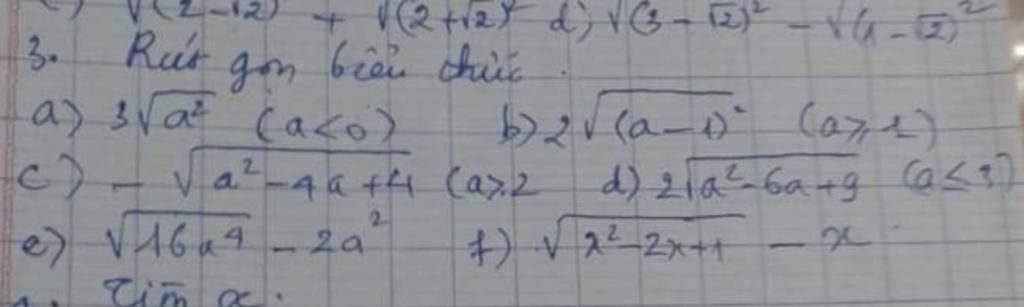 √(2-√2)² + √(2+√2)² d) √(3-√2)² - √(1-√2)²
3. Rút gọn biểu thức.
a) 3√a² (a<0) b) 2√(a-1)² (a≥1)
c) - √a²-4a+4 (a≥2 d) 2√a²-6a+9 (a≤3)
e) √16a⁴ - 2a² f) √x²-2x+1 - x
Tìm x.